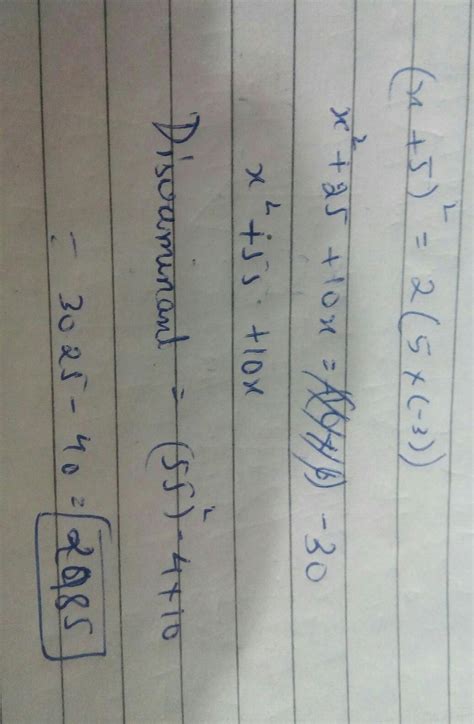 (x + 5)² = 2(5 × (-3))
x² + 25 + 10x = - 30
x² + 55 + 10x
Discriminant = (55)² - 4 × 10
= 3025 - 40 = 2985